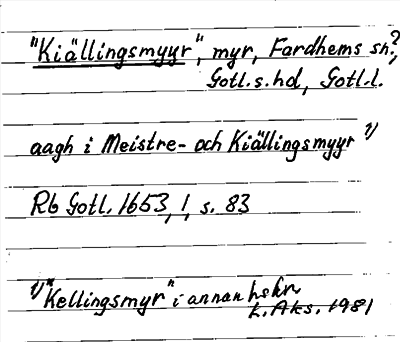 "Kiällingsmyyr", myr, Fardhems sn?,
Gotl.s.hd, Gotl.l.
aagh i Meistre- och Kiällingsmyyr 1)
Rb Gotl. 1653, 1, s. 83
1) "Kellingsmyr" i annan hskr.
L. Aks. 1981